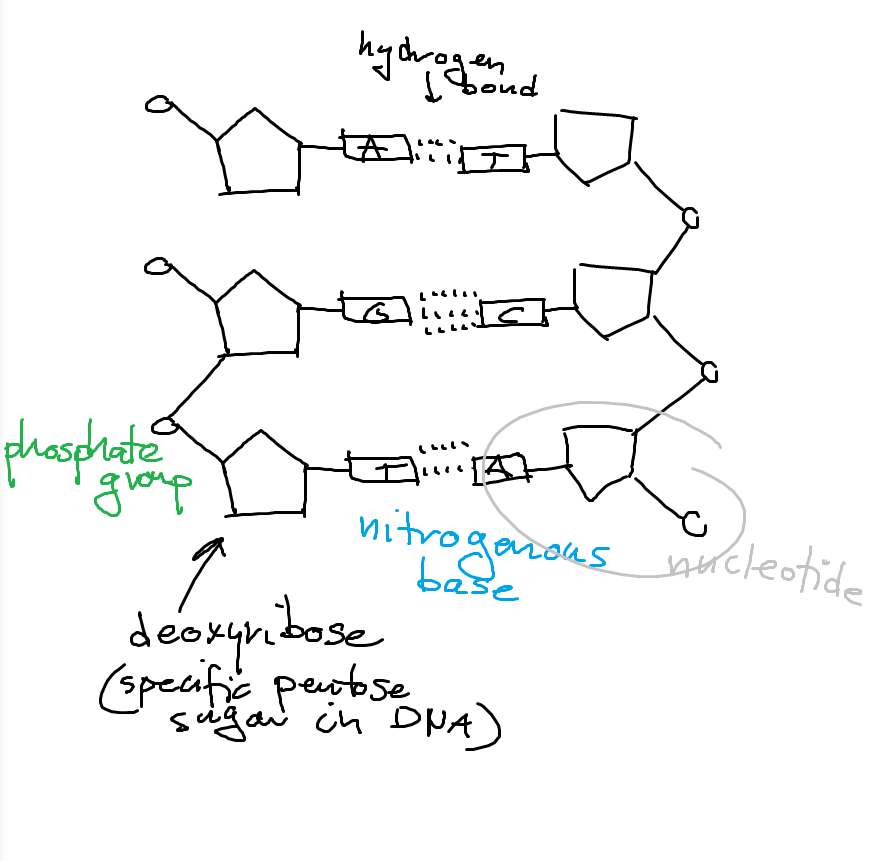 hydrogen
bond
A T
G C
phosphate
group
T A
nitrogenous
base
nucleotide
deoxyribose
(specific pentose
sugar in DNA)